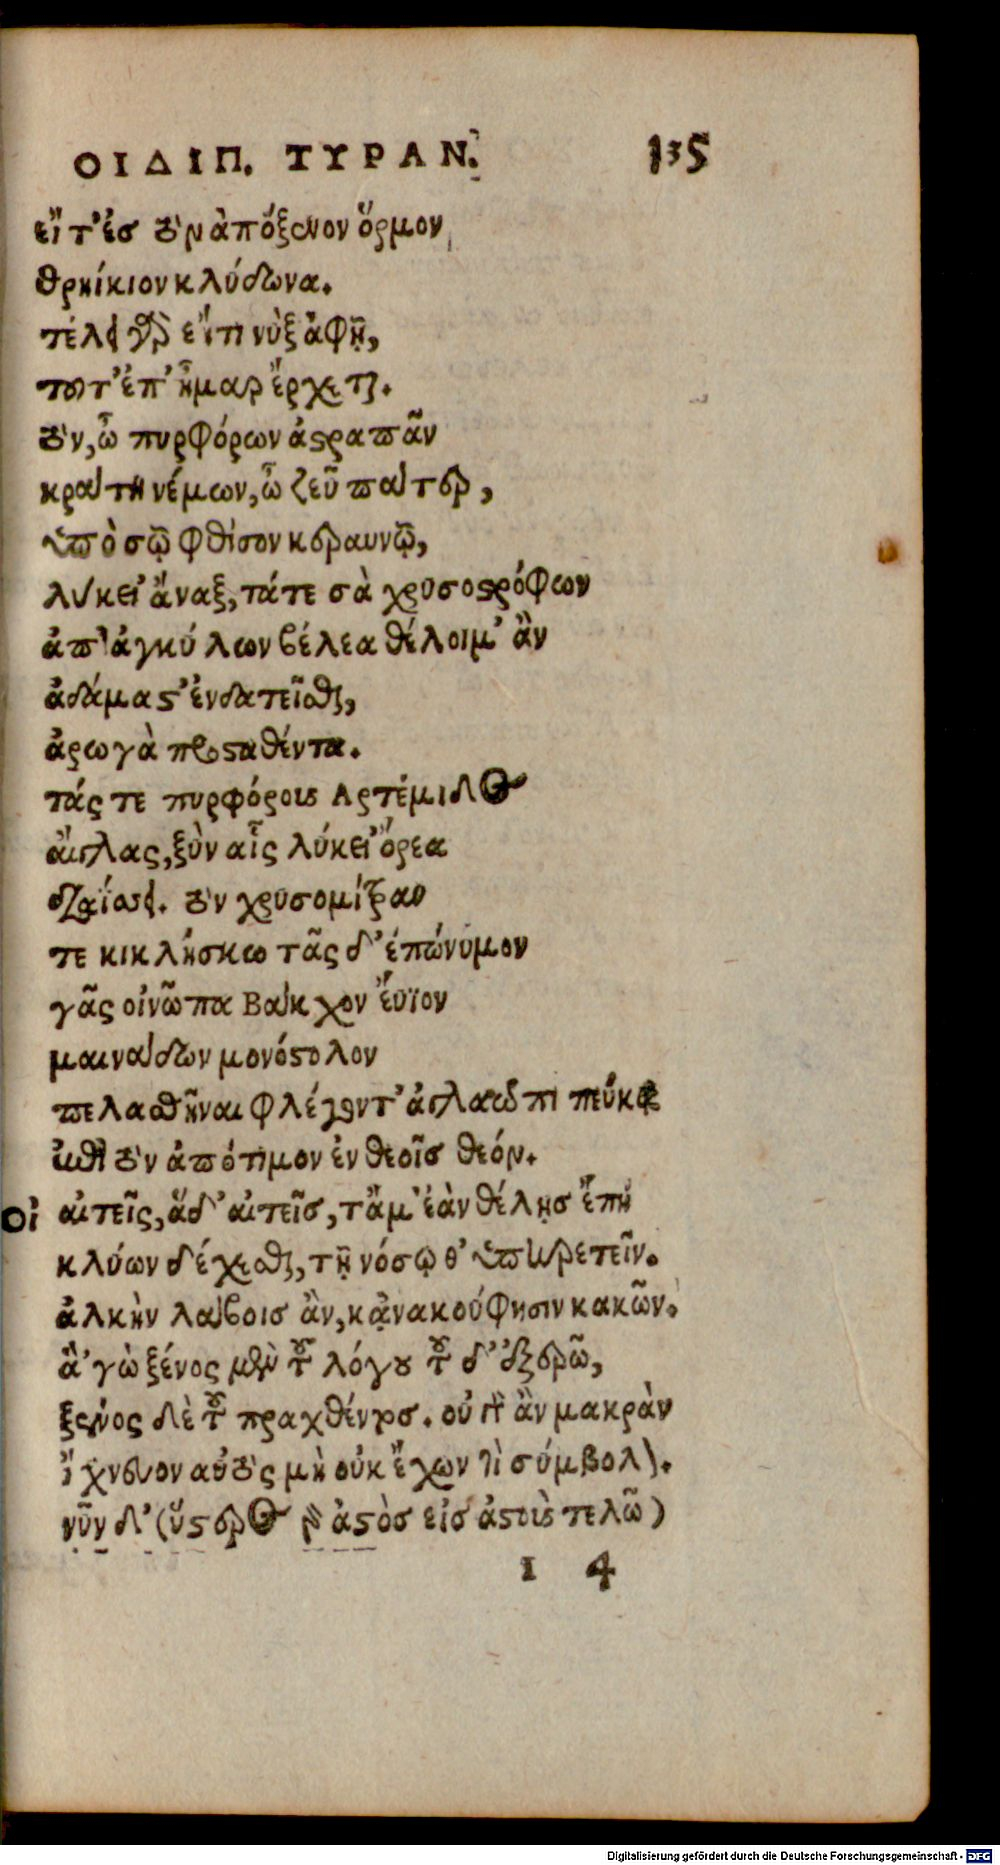 ΟΙΔΙΠ. ΤΥΡΑΝ. 135
εἴτ' ἐσ τὸν ἀπόξενον ὅρμον
θρηίκιον κλύδωνα.
τέλει γὰρ εἴ τι νὺξ ἀφῇ,
τοῦτ' ἐπ' ἦμαρ ἔρχεται.
τὸν, ὦ πυρφόρων ἀστραπᾶν
κράτη νέμων, ὦ ζεῦ πάτερ,
ὑπὸ σῷ φθίσον κεραυνῷ,
λύκει' ἄναξ, τάτε σὰ χρυσοστρόφων
ἀπ' ἀγκύλων βέλεα θέλοιμ' ἂν
ἀδάμαστ' ἐνδατεῖσθαι,
ἀρωγὰ προσταθέντα.
τάς τε πυρφόρους Αρτέμιδος
αἴγλας, ξὺν αἷς λύκει' ὄρεα
διαΐσσει. τὸν χρυσομίτραν
τε κικλήσκω τᾶς δ' ἐπώνυμον
γᾶς οἰνῶπα Βάκχον εὔϊον
μαινάδων μονόστολον
πελασθῆναι φλέγοντ' ἀγλαῶπι πεύκᾳ
ἐπὶ τὸν ἀπότιμον ἐν θεοῖσ θεόν.
οἰ αἰτεῖς, ἅδ' αἰτεῖσ, τἄμ' ἐὰν θέλῃσ ἔπη
κλύων δέχεσθαι, τῇ νόσῳ θ' ὑπηρετεῖν.
ἀλκὴν λάβοισ ἂν, κἀνακούφησιν κακῶν.
ἃ 'γὼ ξένος μὲν τοῦ λόγου τοῦ δ' ἐξερῶ,
ξένος δὲ τοῦ πραχθέντοσ. οὐ γὰρ ἂν μακρὰν
ἴχνευον αὐτὸς μὴ οὐκ ἔχων τὶ σύμβολον.
νῦν δ' (ὕστερος γὰρ ἀστὸσ εἰσ ἀστοὺς τελῶ)
I 4
Digitalisierung gefördert durch die Deutsche Forschungsgemeinschaft - DFG